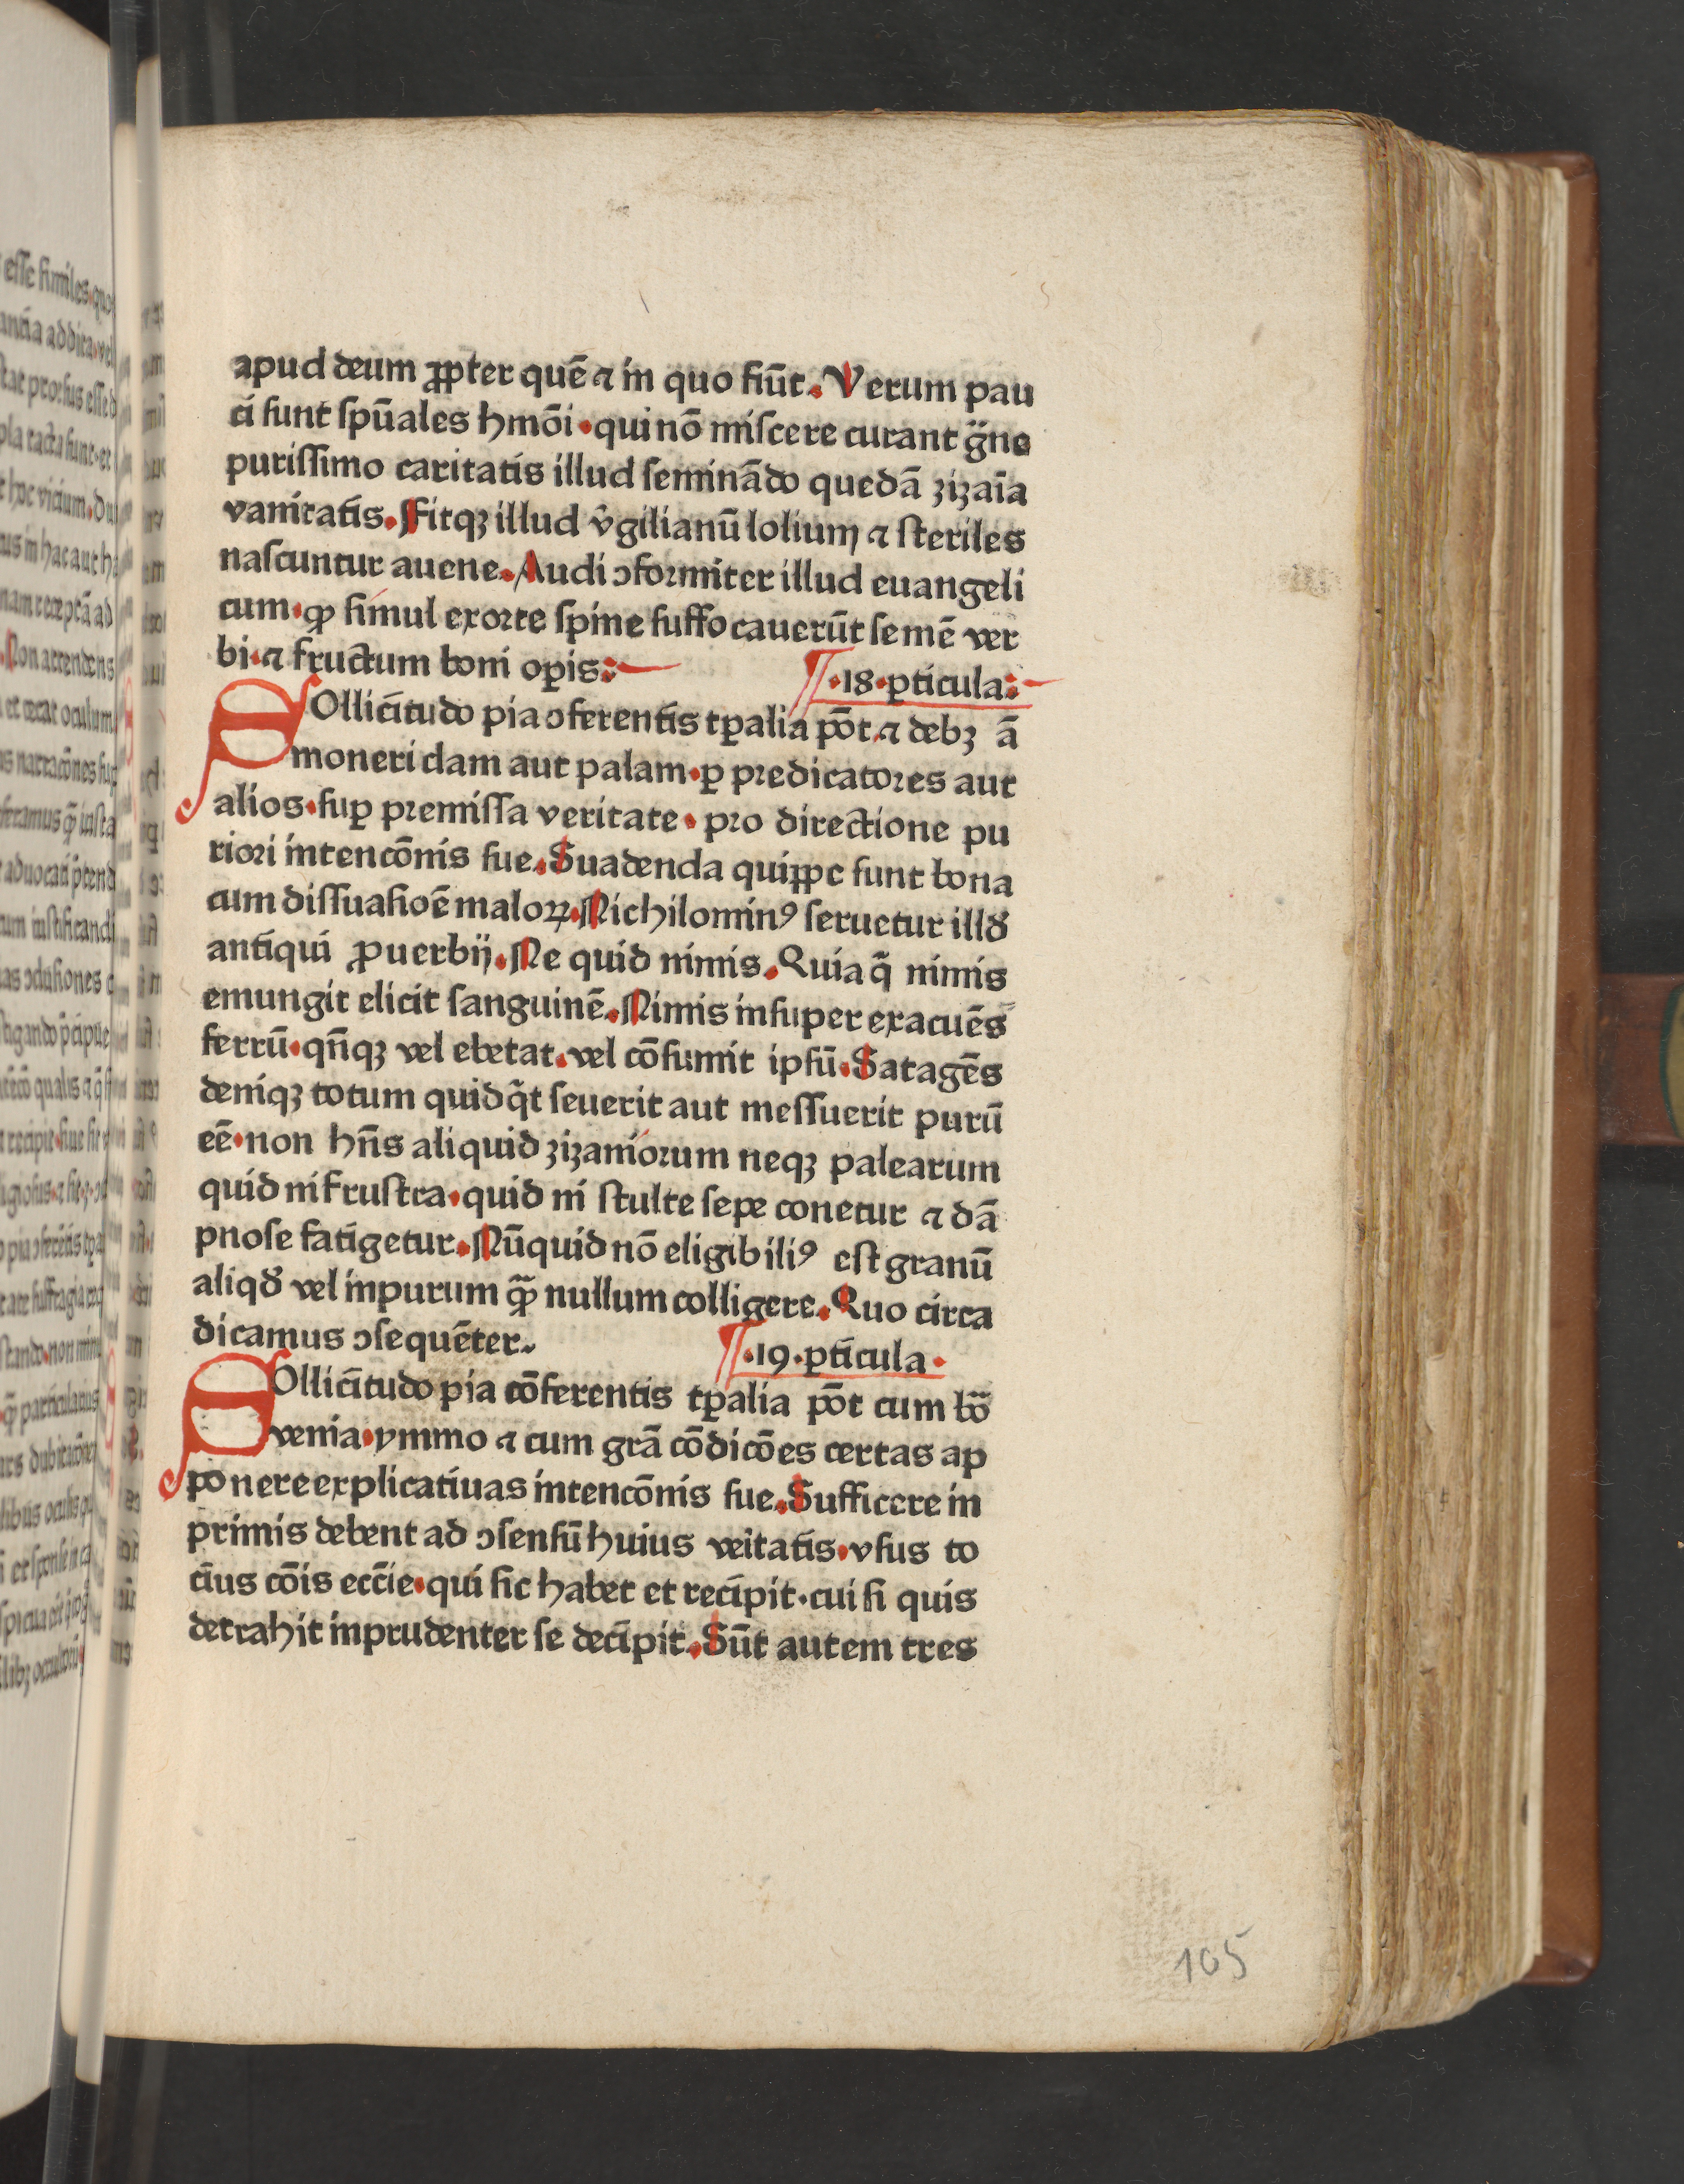 apud deum ꝓpter quē ⁊ in quo fiūt. Verum pau
ci sunt spūales hmōi. qui nō miscere curant g̈no
purissimo caritatis illud seminādo quedā zizaīa
vanitatis. Fitqꝫ illud v̓gilianū lolium ⁊ steriles
nascuntur auene. Audi ↄformiter illud euangeli
cum. ꝙ simul exorte spine suffocauerūt semē ver
bi. ⁊ fructum boni oꝑis:
¶ .18. ꝑticula:
SOllicitudo pia ↄferentis tꝑalia pōt. ⁊ debꝫ ā
moneri clam aut palam. ꝑ predicatores aut
alios. suꝑ premissa veritate. pro directione pu
riori intencōnis sue. Suadenda quippe sunt bona
cum dissuasioē maloꝝ. Nichilominꝰ seruetur illd̓
antiqui ꝓuerbij. Ne quid nimis. Quia q̄ nimis
emungit elicit sanguinē. Nimis insuper exacuēs
ferrū. qn̄qꝫ vel ebetat. vel cōsumit ipsū. Satagēs
deniqꝫ totum quidq̄t seuerit aut messuerit purū
eē. non hn̄s aliquid zizaniorum neqꝫ palearum
quid ni frustra. quid ni stulte sepe conetur ⁊ dā
pnose fatigetur. Nūquid nō eligibiliꝰ est granū
aliqd̓ vel inpurum ꝙ̄ nullum colligere. Quo circa
dicamus ↄsequēter.
¶ .19. ꝑticula.
SOllicitudo pia cōferentis tꝑalia pōt cum bō
venia. ymmo ⁊ cum grā cōdicōes certas ap
ponere explicatiuas intencōnis sue. Sufficere in
primis debent ad ↄsensū huius veitatis. vsus to
cius cōis eccīe. qui sic habet et recipit. cui si quis
detrahit inprudenter se decipit. Sūt autem tres
105